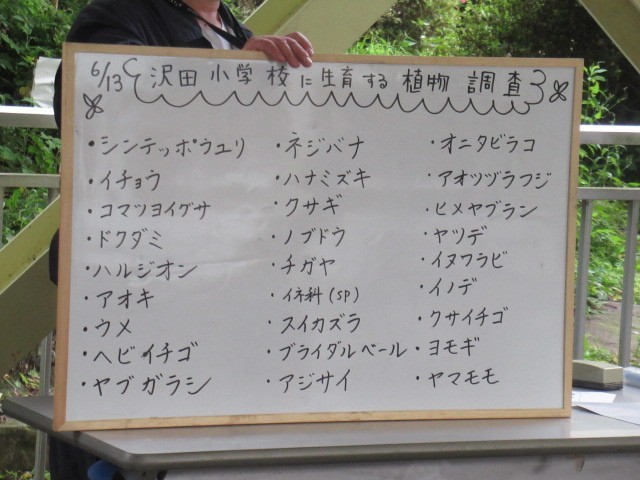 6/13 沢田小学校に生育する植物調査
・シンテッポウユリ
・イチョウ
・コマツヨイグサ
・ドクダミ
・ハルジオン
・アオキ
・ウメ
・ヘビイチゴ
・ヤブガラシ
・ネジバナ
・ハナミズキ
・クサギ
・ノブドウ
・チガヤ
・イネ科(SP)
・スイカズラ
・ブライダルベール
・アジサイ
・オニタビラコ
・アオツヅラフジ
・ヒメヤブラン
・ヤツデ
・イヌワラビ
・イノデ
・クサイチゴ
・ヨモギ
・ヤマモモ